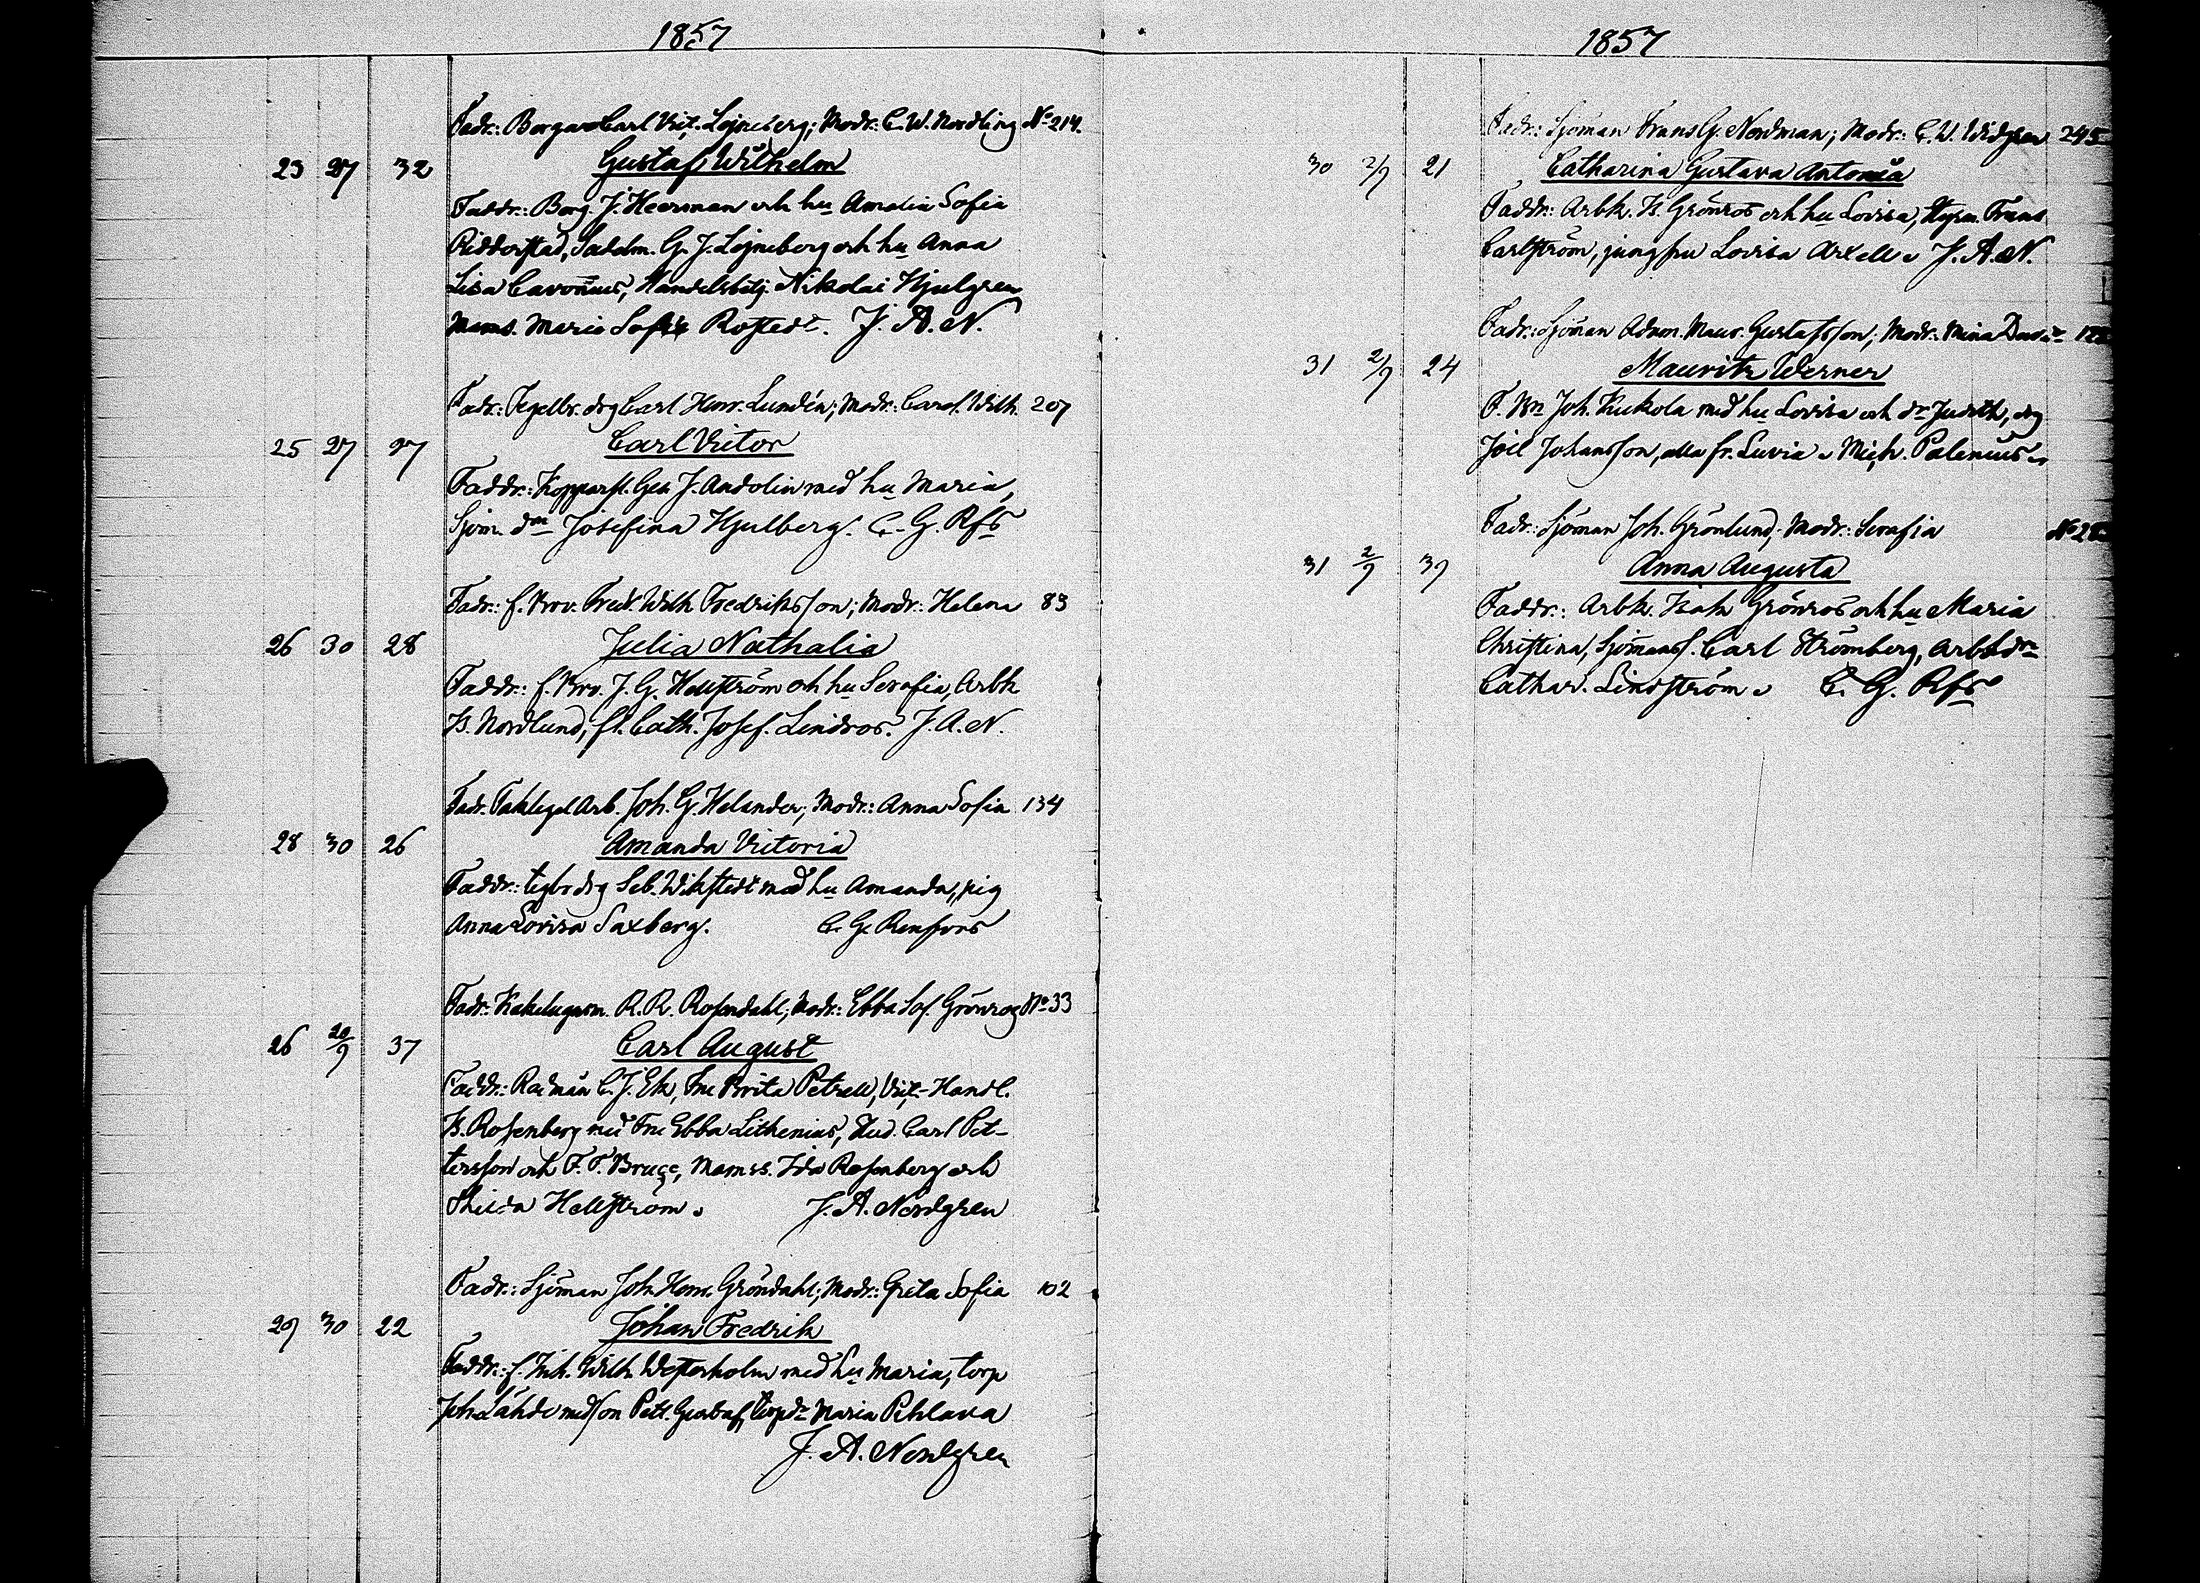 1857
Fadr.: Borgare Carl Vict. Lojneberg; Modr: C. W. Nordling No 214.
23 27 32 Gustaf Wilhelm
Faddr.: Borg. J. Heerman och hu Amalia Sofia
Ridderstad, Sadelm. G. J. Lojneberg och hu Anna
Lisa Cavonius, Handelsbetj. Nikolai Hjulgren
Mams. Maria Sofia Rostedt. J. A. N.
Fadr: Tegelbr. drg Carl Henr. Lundén; Modr: Carol. Wilh. 207
25 27 27 Carl Victor
Faddr.: Kopparsl. Ges. J. Andolin med hu Maria,
Sjom. dn Josefina Hjulberg. C. G. Rfs
Fadr: f. Prov. Fredr. Wilh Fredriksson; Modr: Helena 83
26 30 28 Julia Nathalia
Faddr.: f. Prov. J. G. Hellström och hu Serafia, Arbk
Is. Nordlund, fl. Cath. Josef. Lindros. J. A. N.
Fadr. Taktegel Arb. Joh. G. Helander; Modr: Anna Sofia 134
28 30 26 Amanda Victoria
Faddr.: tegbr drg Seb. Wikstedt med hu Amanda, pig
Anna Lovisa Saxberg. C. G. Renfors
Fadr: Kakelugnsm. R. R. Rosendahl; Modr: Ebba Sof. Grönroos No 33
26 20/9 37 Carl August
Faddr.: Radman C. J. Ek, Fru Brita Petrell, Vict-Handl.
Is. Rosenberg med Fru Ebba Lithenius, Stud. Carl Pet-
tersson och F. F. Bruce, Mamss. Ida Rosenberg och
Hellström. J. A. Nordgren
Fadr.: Sjöman Joh Henr. Gröndahl; Modr: Greta Sofia 102
29 30 22 Johan Fredrik
Faddr.: f. Inh. Wilh. Westerholm med hu Maria, torp
Joh. Lähde med son Petr. Gustaf, torpdr Maria Pihlava
J. A. Nordgren
1857
Fadr.: Sjöman Frans G. Nordman; Modr: C. W. Widgren 245
30 2/9 21 Catharina Gustava Antonia
Faddr: Arbk. Is. Grönros och hu Lovisa, Styrm. Frans
Carlström, jungfru Lovisa Axell. J. A. N.
Fadr: Sjöman Adam. Maur. Gustafsson; Modr: Mina
31 2/9 24 Mauritz Werner
F. Bn Joh. Kukola med hu Lovisa och dr Judith, drg
Joel Johansson, alla fr. Luvia. Mich. Palenius.
Fadr.: Sjöman Joh. Grönlund; Modr: Serafia No 28
31 2/9 39 Anna Augusta
Faddr.: Arbk. Isak Grönros och hu Maria
Christina, Sjömans f. Carl Strömberg, Arbk dr
Cathar. Lindström. C. G. Rfs